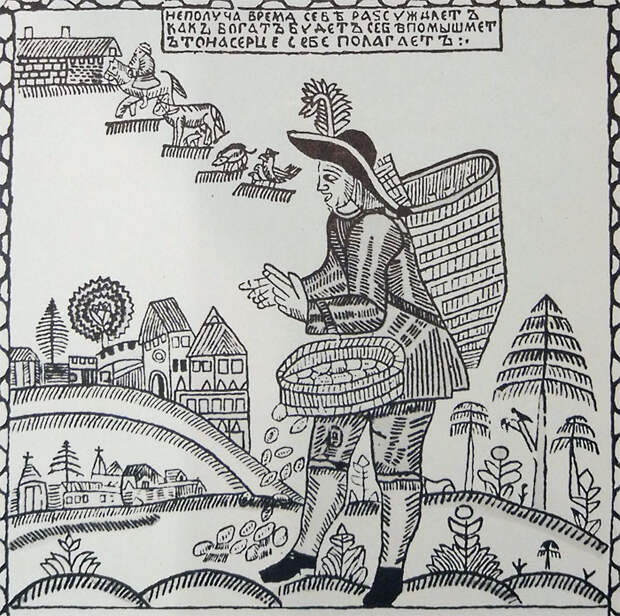 НЕПОЛУЧА ВРЕМА СЕБѢ РАЅСУЖДАЕТЪ
КАКЪ БОГАТЪ БУДЕТЪ СЕБѢ ВПОМЫШЛАЕТ
Ъ ТОНАСЕРЦЕ СЕБЕ ПОЛАГАЕТЪ:.